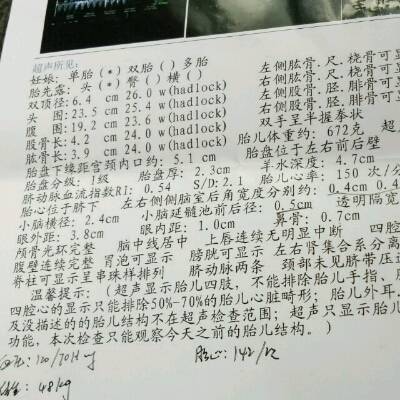 超声所见:
妊娠: 单胎 (*) 双胎 ( ) 多胎
胎先露: 头 (*) 臀 ( ) 横 ( )
双顶径: 6.4 cm 26.0 w(hadlock)
头 围: 23.5 cm 25.4 w(hadlock)
腹 围: 19.2 cm 23.6 w(hadlock)
股骨长: 4.2 cm 24.0 w(hadlock)
肱骨长: 3.9 cm 24.0 w(hadlock)
胎盘下缘距宫颈内口约: 5.1 cm
胎盘分级: 1级 胎盘厚: 2.3cm
脐动脉血流指数RI: 0.54 S/D: 2.1
左侧肱骨.尺、桡骨可显
右侧肱骨.尺、桡骨可显
左侧股骨.胫.腓骨可显
右侧股骨.胫.腓骨可显
双手呈半握拳状
胎儿体重约: 672克 超
胎盘位于左右前后壁
羊水深度: 4.7cm
胎儿心率: 150 次/分
胎心位于脐下 左右侧侧脑室后角宽度分别约: 0.4cm 0.4
小脑横径: 2.4cm 小脑延髓池前后径: 0.5cm 透明隔宽
眼外距: 3.8cm 眼内距: 1.0cm 鼻骨: 0.7cm
颅骨光环完整 脑中线居中 上唇连续无明显中断 四腔
腹壁连续完整 胃泡可显 膀胱可显示 左右肾集合系分离
脊柱可显示呈串珠样排列 脐动脉两条 颈部未见脐带压迹
温馨提示: (超声显示胎儿四肢, 不能排除胎儿手指、脚
四腔心的显示只能排除50%-70%的胎儿心脏畸形; 胎儿外耳、
及没描述的的胎儿结构不在超声检查范围; 超声只显示胎儿
功能, 本次检查只能观察今天之前的胎儿结构。)
120/70 胎心: 142/
48kg